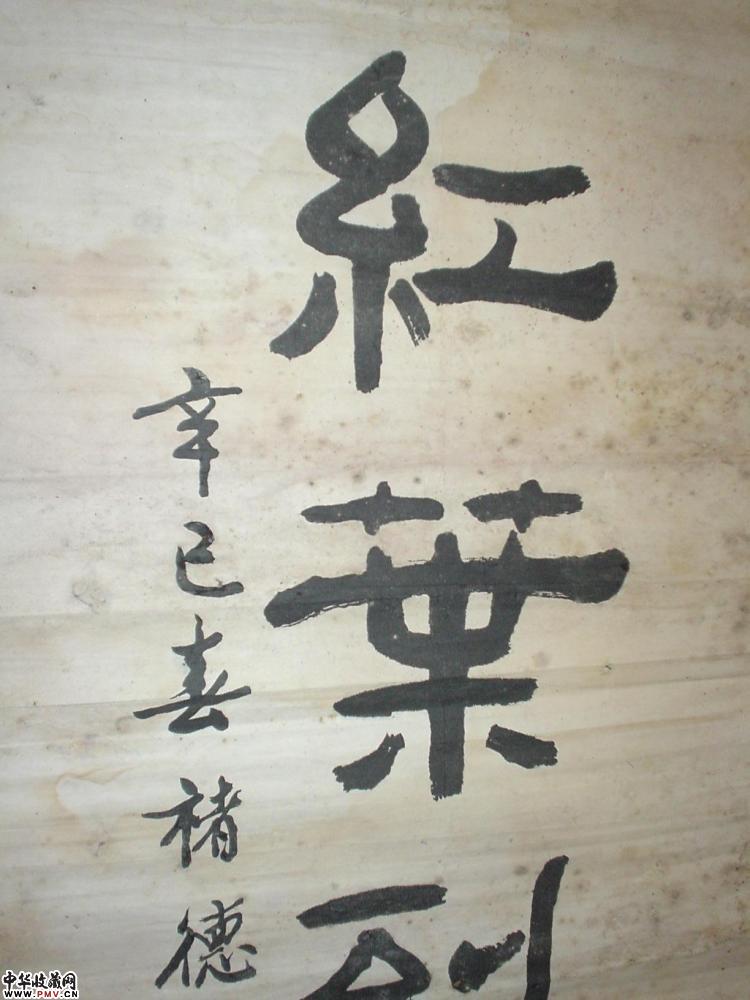 紅葉
辛巳春褚德
中华收藏网
WWW.PMV.CN